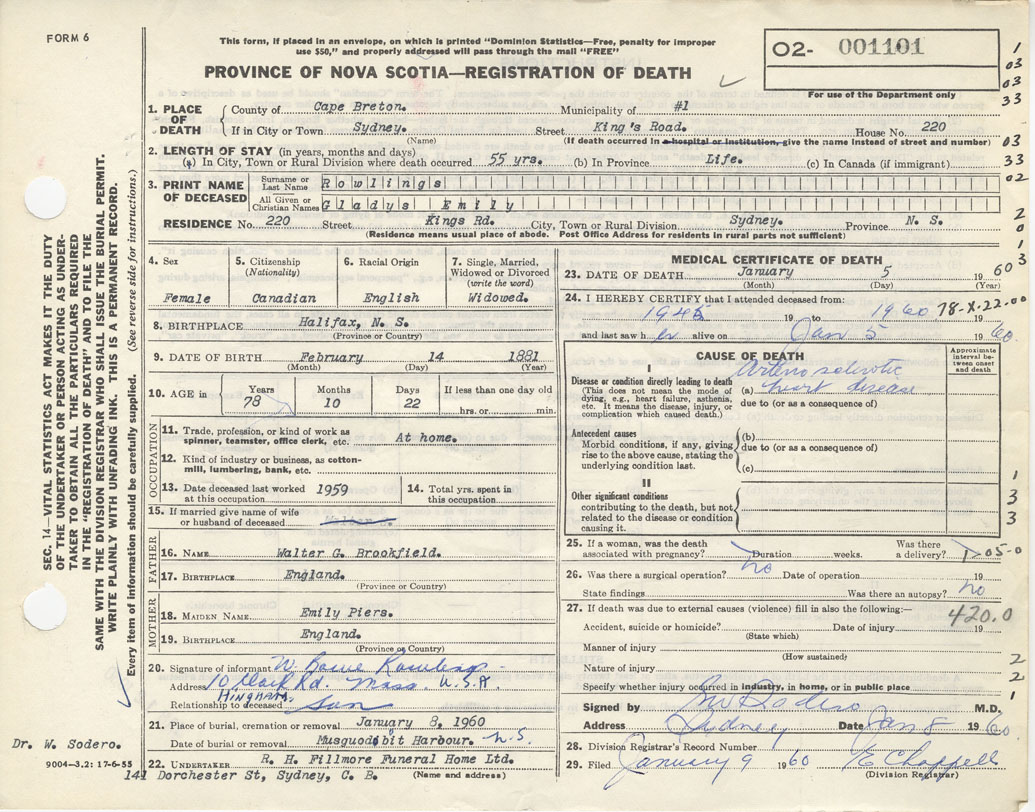 FORM 6
This form, if placed in an envelope, on which is printed "Dominion Statistics—Free, penalty for improper
use $50," and properly addressed will pass through the mail "FREE"
PROVINCE OF NOVA SCOTIA—REGISTRATION OF DEATH
02- 001101
For use of the Department only
1
03
03
33
1. PLACE OF DEATH County of Cape Breton. Municipality of #1
If in City or Town Sydney. Street King's Road. House No. 220
(Name) (If death occurred in a hospital or institution, give the name instead of street and number) 03
2. LENGTH OF STAY (in years, months and days)
(a) In City, Town or Rural Division where death occurred 55 yrs. (b) In Province Life. (c) In Canada (if immigrant) 33
02
3. PRINT NAME OF DECEASED Surname or Last Name Rowlings
All Given or Christian Names Gladys Emily
2
RESIDENCE No. 220 Street Kings Rd. City, Town or Rural Division Sydney. Province N. S.
0
(Residence means usual place of abode. Post Office Address for residents in rural parts not sufficient)
1
3
4. Sex Female
5. Citizenship (Nationality) Canadian
6. Racial Origin English
7. Single, Married, Widowed or Divorced (write the word) Widowed.
8. BIRTHPLACE Halifax, N. S.
(Province or Country)
9. DATE OF BIRTH February 14 1881
(Month) (Day) (Year)
10. AGE in Years 78 Months 10 Days 22 If less than one day old hrs. or min.
OCCUPATION
11. Trade, profession, or kind of work as spinner, teamster, office clerk, etc. At home.
12. Kind of industry or business, as cotton-mill, lumbering, bank, etc.
13. Date deceased last worked at this occupation 1959
14. Total yrs. spent in this occupation
15. If married give name of wife or husband of deceased
FATHER
16. NAME Walter G. Brookfield.
17. BIRTHPLACE England.
(Province or Country)
MOTHER
18. MAIDEN NAME Emily Piers.
19. BIRTHPLACE England.
(Province or Country)
20. Signature of informant W. Rowlings
Address 10 Rd. Mass. U.S.A.
HINGHAM
Relationship to deceased Son
21. Place of burial, cremation or removal January 8, 1960
Date of burial or removal Musquodobit Harbour. N.S.
22. UNDERTAKER R. H. Fillmore Funeral Home Ltd.
141 Dorchester St, Sydney, C. B. (Name and address)
MEDICAL CERTIFICATE OF DEATH
23. DATE OF DEATH January 5 1960
(Month) (Day) (Year)
03
24. I HEREBY CERTIFY that I attended deceased from:
1945 19 to 1960 19 78-X-22-00
and last saw her alive on Jan 5 1960.
CAUSE OF DEATH
Approximate interval between onset and death
I
Disease or condition directly leading to death
(This does not mean the mode of dying, e.g., heart failure, asthenia, etc. It means the disease, injury, or complication which caused death.)
(a) Arteriosclerotic heart disease
due to (or as a consequence of)
Antecedent causes
Morbid conditions, if any, giving rise to the above cause, stating the underlying condition last.
(b)
due to (or as a consequence of)
(c)
II
Other significant conditions
contributing to the death, but not related to the disease or condition causing it.
1
3
3
25. If a woman, was the death associated with pregnancy? Duration weeks. Was there a delivery? 1-05-0
26. Was there a surgical operation? no Date of operation 19
State findings Was there an autopsy? no
27. If death was due to external causes (violence) fill in also the following:—
420.0
Accident, suicide or homicide? Date of injury 19
(State which)
Manner of injury
(How sustained)
2
Nature of injury
2
Specify whether injury occurred in industry, in home, or in public place
1
Signed by W Sodero M.D.
Address Sydney Date Jan 8 1960.
28. Division Registrar's Record Number
29. Filed January 9 1960 Chappell
(Division Registrar)
SEC. 14—VITAL STATISTICS ACT MAKES IT THE DUTY
OF THE UNDERTAKER OR PERSON ACTING AS UNDER-
TAKER TO OBTAIN ALL THE PARTICULARS REQUIRED
IN THE "REGISTRATION OF DEATH" AND TO FILE THE
SAME WITH THE DIVISION REGISTRAR WHO SHALL ISSUE THE BURIAL PERMIT.
WRITE PLAINLY WITH UNFADING INK. THIS IS A PERMANENT RECORD.
Every item of information should be carefully supplied. (See reverse side for instructions.)
Dr. W. Sodero.
9004—3.2: 17-6-55